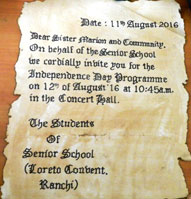 Date : 11th August 2016
Dear Sister Marion and Community,
On behalf of the Senior School
we cordially invite you for the
Independence Day Programme
on 12th of August'16 at 10:45a.m.
in the Concert Hall.
The Students
Of
Senior School
(Loreto Convent,
Ranchi)